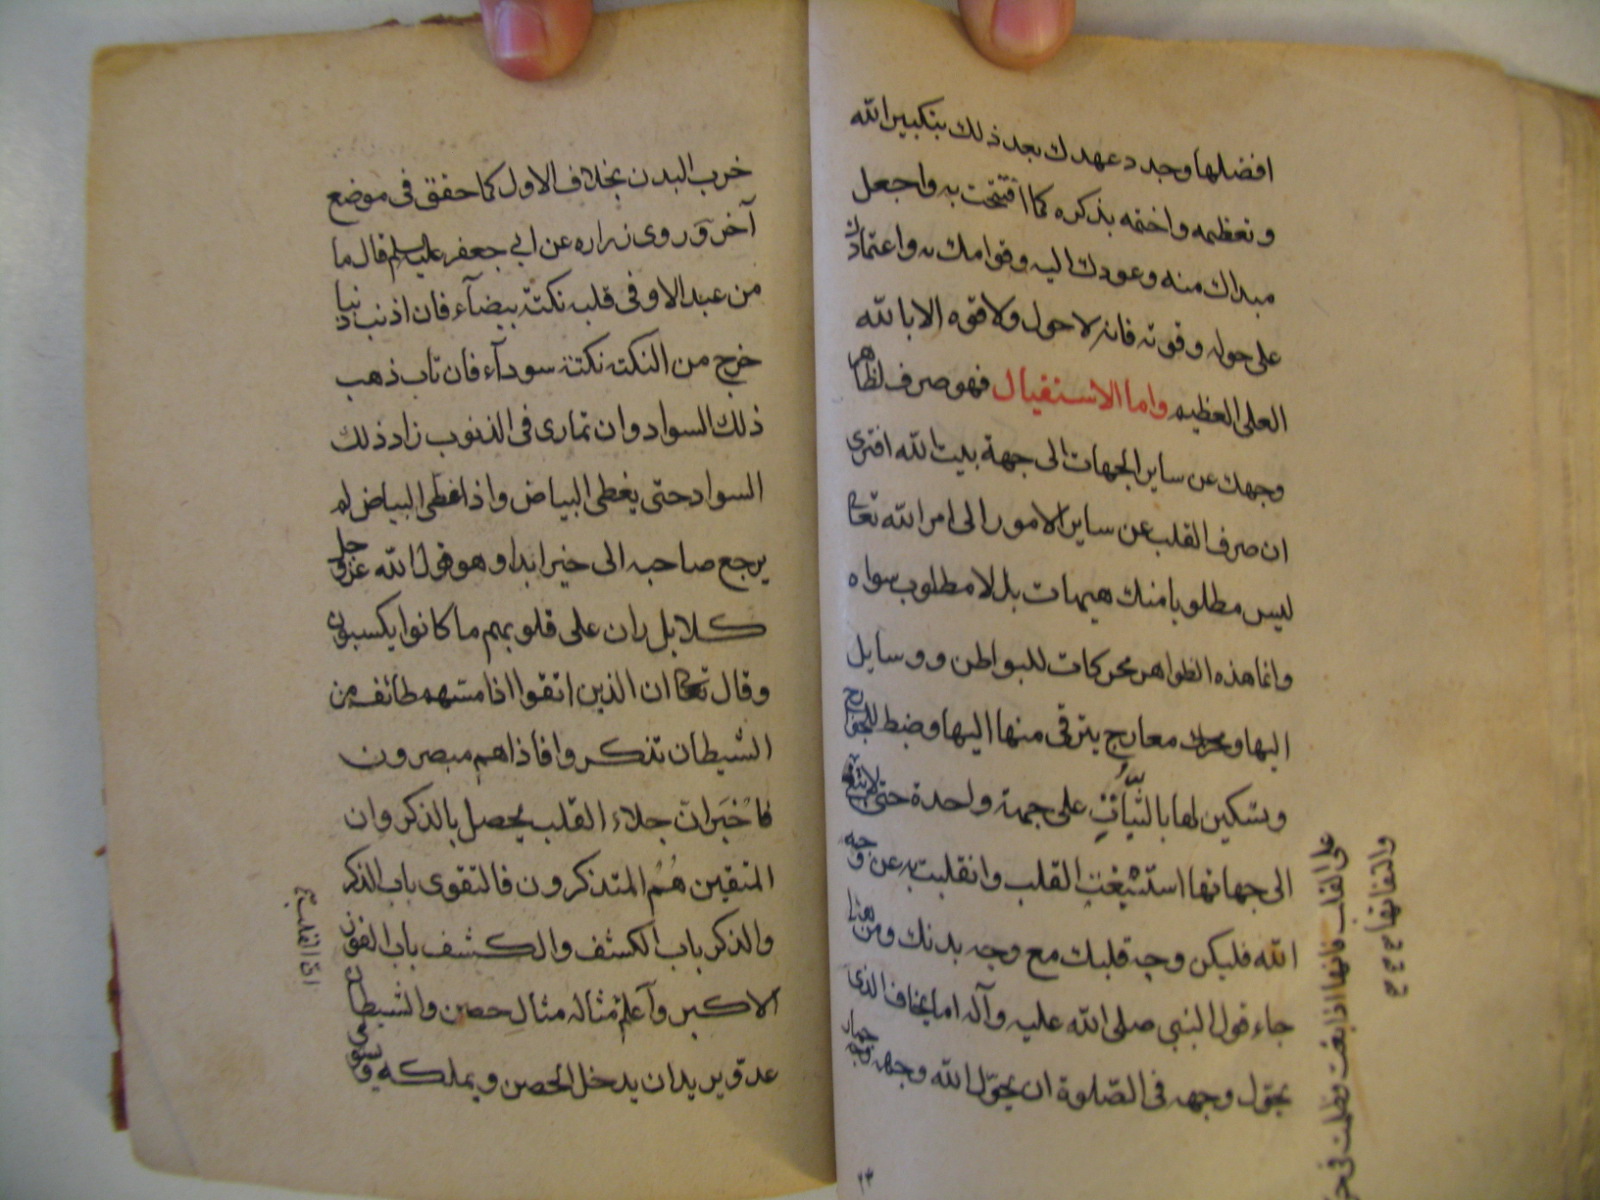 افضلها وجدد عهدك بعد ذلك بتكبير الله
وتعظيمه واختمه بذكره كما افتتحت به واجعل
مبداك منه وعودك اليه وقوامك به واعتمادك
على حوله وقوته فانه لا حول ولا قوه الا بالله
العلى العظيم واما الاستقبال فهو صرف لظاهر
وجهك عن ساير الجهات الى جهة بيت الله افترى
ان صرف القلب عن ساير الامور الى امر الله تعا
ليس مطلوبا منك هيهات بل لا مطلوب سواه
وانما هذه الظواهر محركات للبواطن ووسايل
اليها ومعارج يترقى منها اليها وضبط للجوارح
وتسكين لها بالثبات على جهة واحدة حتى لا تبغى
على القلب فانها اذا بغت وظلمت فى
والتفاتها
الى جهاتها استتبعت القلب وانقلبت به عن وجه
الله فليكن وجه قلبك مع وجه بدنك ومن هنا
جاء قول النبى صلى الله عليه وآله اما يخاف الذى
يحول وجهه فى الصلوة ان يحول الله وجهه وجه حمار
خرب البدن بخلاف الاول كما حقق فى موضع
آخر وروى زراره عن ابي جعفر عليه السلم قال ما
من عبد الا وفى قلبه نكتة بيضآء فان اذنب ذنبا
خرج من النكته نكتة سودآء فان تاب ذهب
ذلك السواد وان تمارى فى الذنوب زاد ذلك
السواد حتى يغطى البياض واذا غطى البياض لم
يرجع صاحبه الى خير ابدا وهو قول الله عز وجل
كلا بل ران على قلوبهم ما كانوا يكسبون
وقال تعا ان الذين اتقوا اذا مسهم طائف من
الشيطان تذكروا فاذا هم مبصرون
فاخبر ان جلاء القلب يحصل بالذكر وان
المتقين هم المتذكرون فالتقوى باب الذكر
والذكر باب الكشف والكشف باب الفوز
الاكبر وآعلم مثاله مثال حصن والشيطان
عدو يريد ان يدخل الحصن ويملكه ويستولى